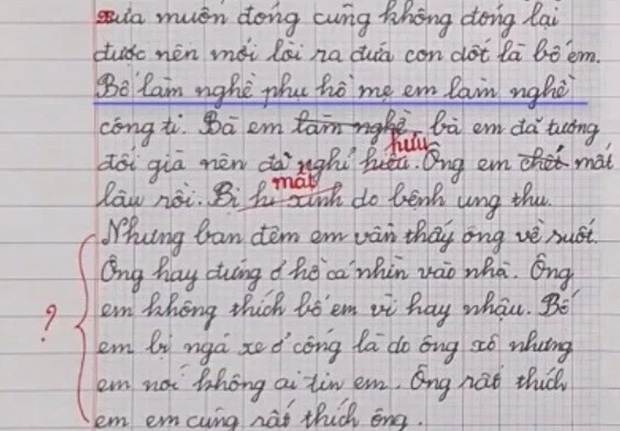 xưa muốn đóng cũng không đóng lại
được nên mới lòi ra đứa con dốt là bố em.
Bố làm nghề phụ hồ mẹ em làm nghề
công ti. Bà em làm nghề, bà em đã tương
hưu
đối già nên đã nghỉ hiêu. Ông em chết mất
mất
lâu rồi. Bị hi xinh do bệnh ung thư.
Nhưng ban đêm em vẫn thấy ông về suốt.
Ông hay đứng ở hồ cá nhìn vào nhà. Ông
? em không thích bố em vì hay nhậu. Bố
em bị ngã xe ở cổng là do ông xô nhưng
em nói không ai tin em. Ông rất thích
em em cũng rất thích ông.